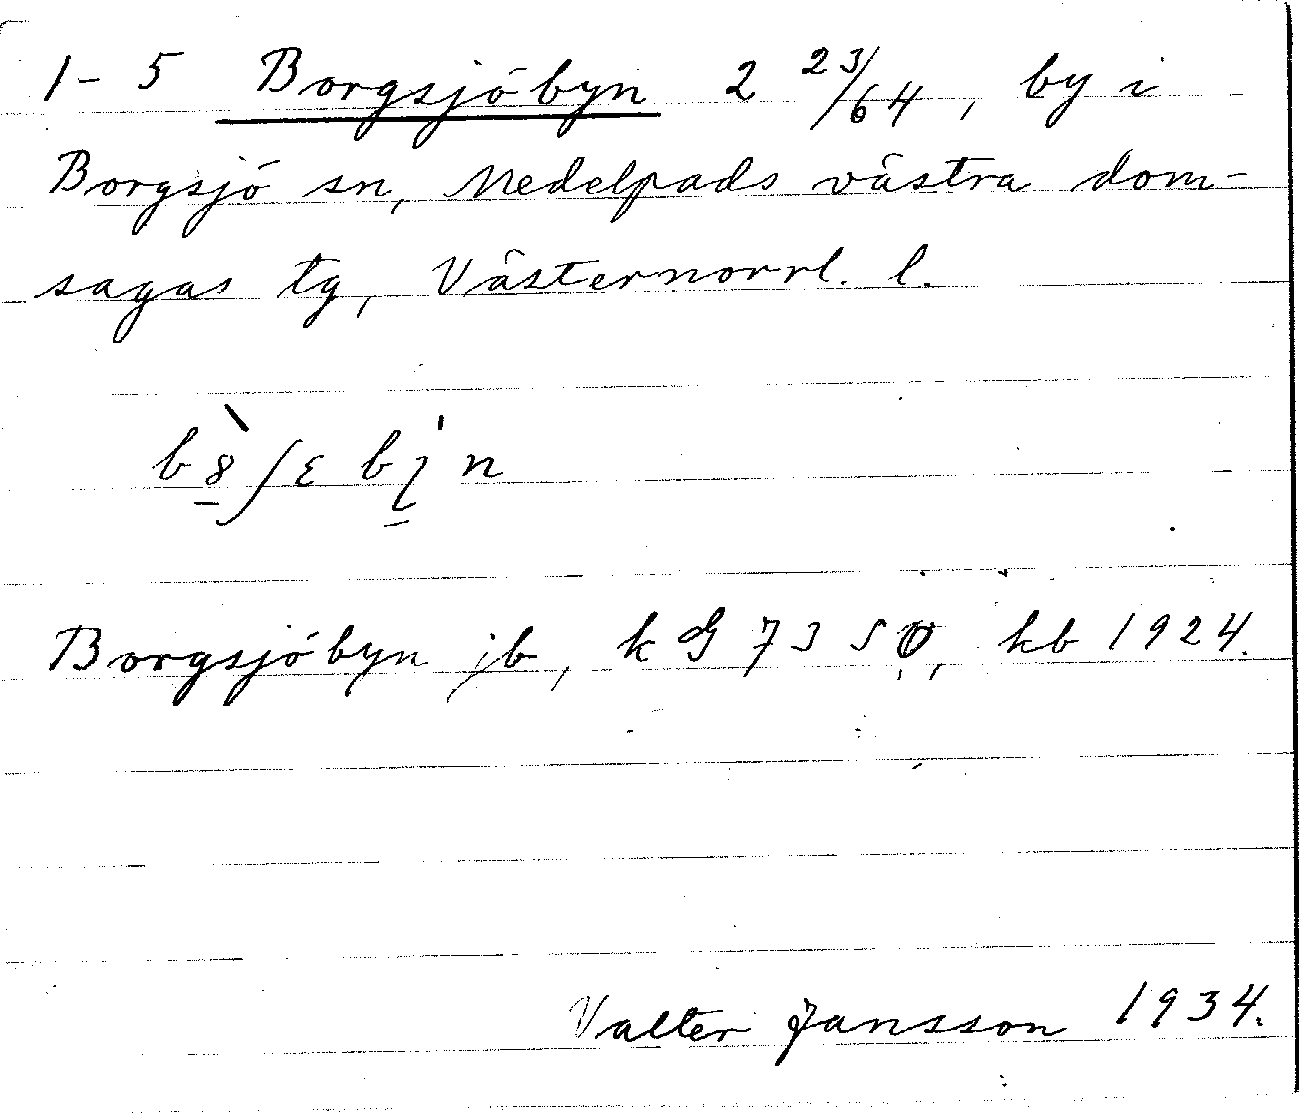 1-5 Borgsjöbyn 2 23/64, by i
Borgsjö sn, Medelpads västra dom-
sagas tg, Västernorrl. l.
Borgsjöbyn jb, k G 7350, kb 1924.
Valter Jansson 1934.